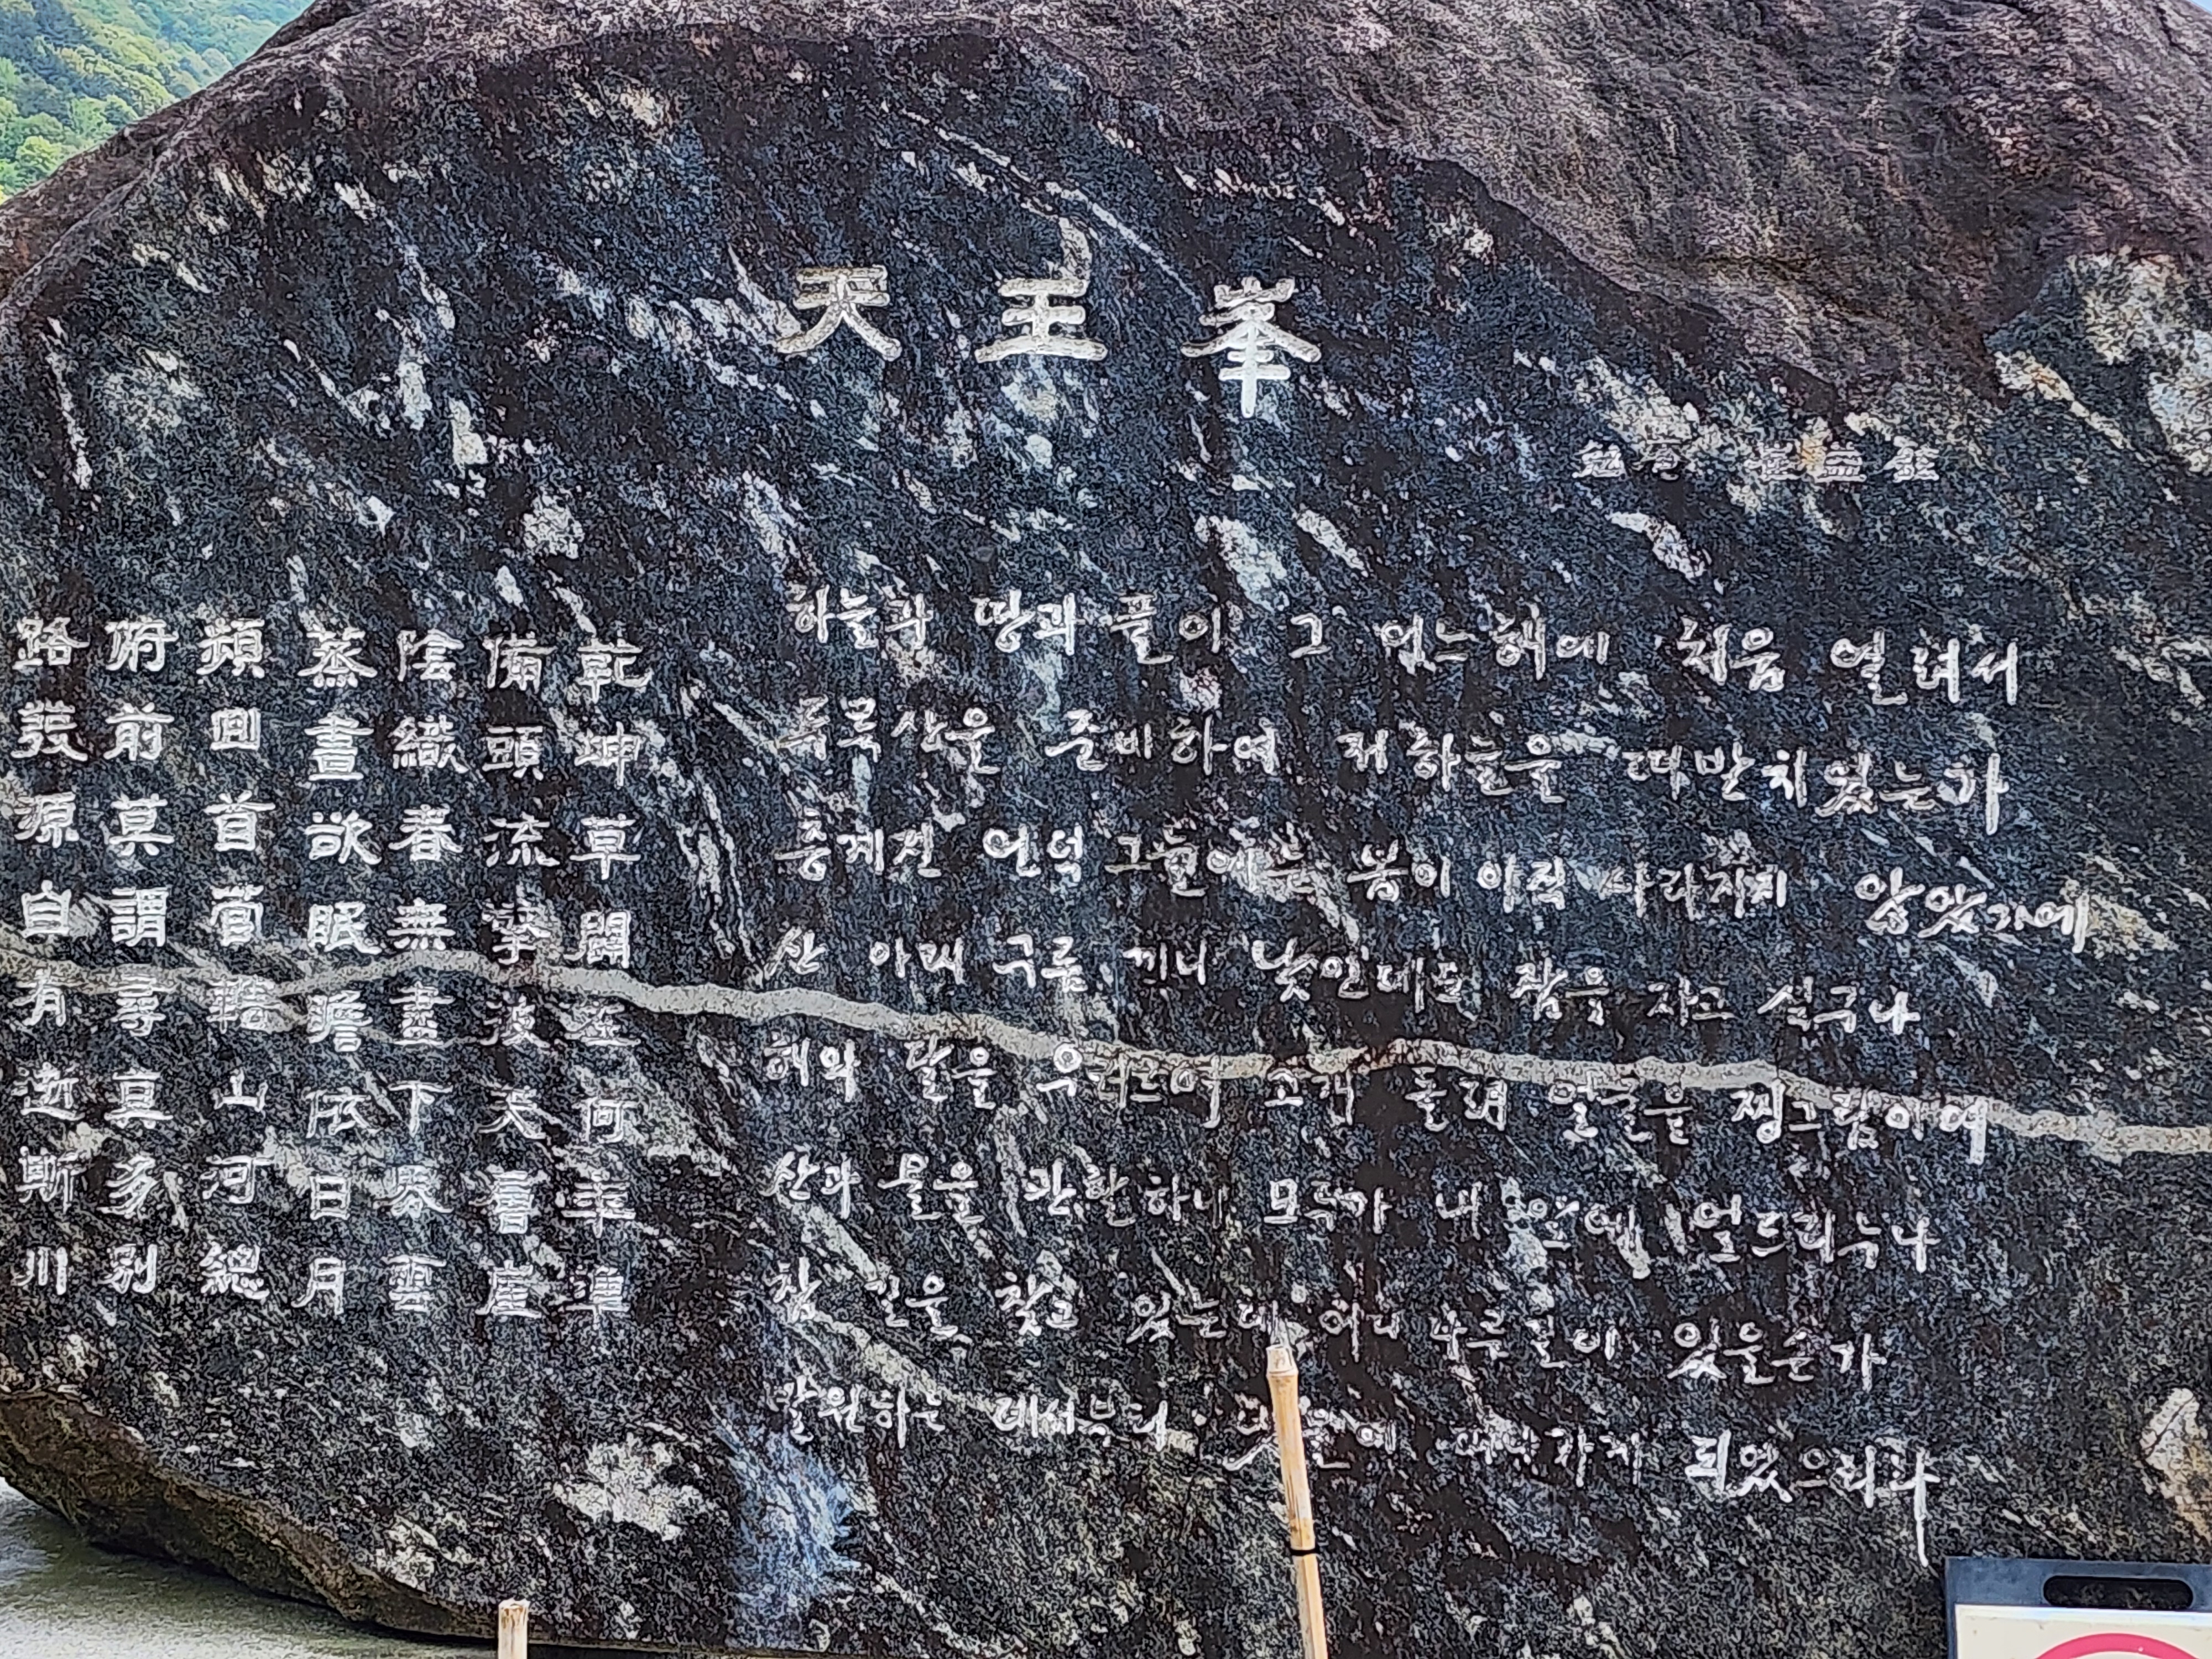 天王峯
勉庵 崔益鉉
하늘과 땅과 풀이 그 어느 해에 처음 열려서
두륙산을 준비하여 저 하늘을 떠받치었는가
층계진 언덕 그늘에는 봄이 아직 사라지지 않았기에
산 아래 구름 끼니 낮인데도 잠을 자고 싶구나
해와 달을 우러르며 고개 돌려 얼굴을 찡그림이여
산과 물을 관할하니 모두가 내 앞에 엎드리누나
참 길을 찾고 있는데 어디 다른 길이 있을손가
발원하는 데서부터 이 냇물에 떠나가게 되었으리라
乾坤草闢在何年準
備頭流擎彼天層崖
陰織春無盡下界雲
蒸晝欲眠瞻依日月
頻回首菅轄山河總
俯前莫謂尋真多別
路發源自有逝斯川